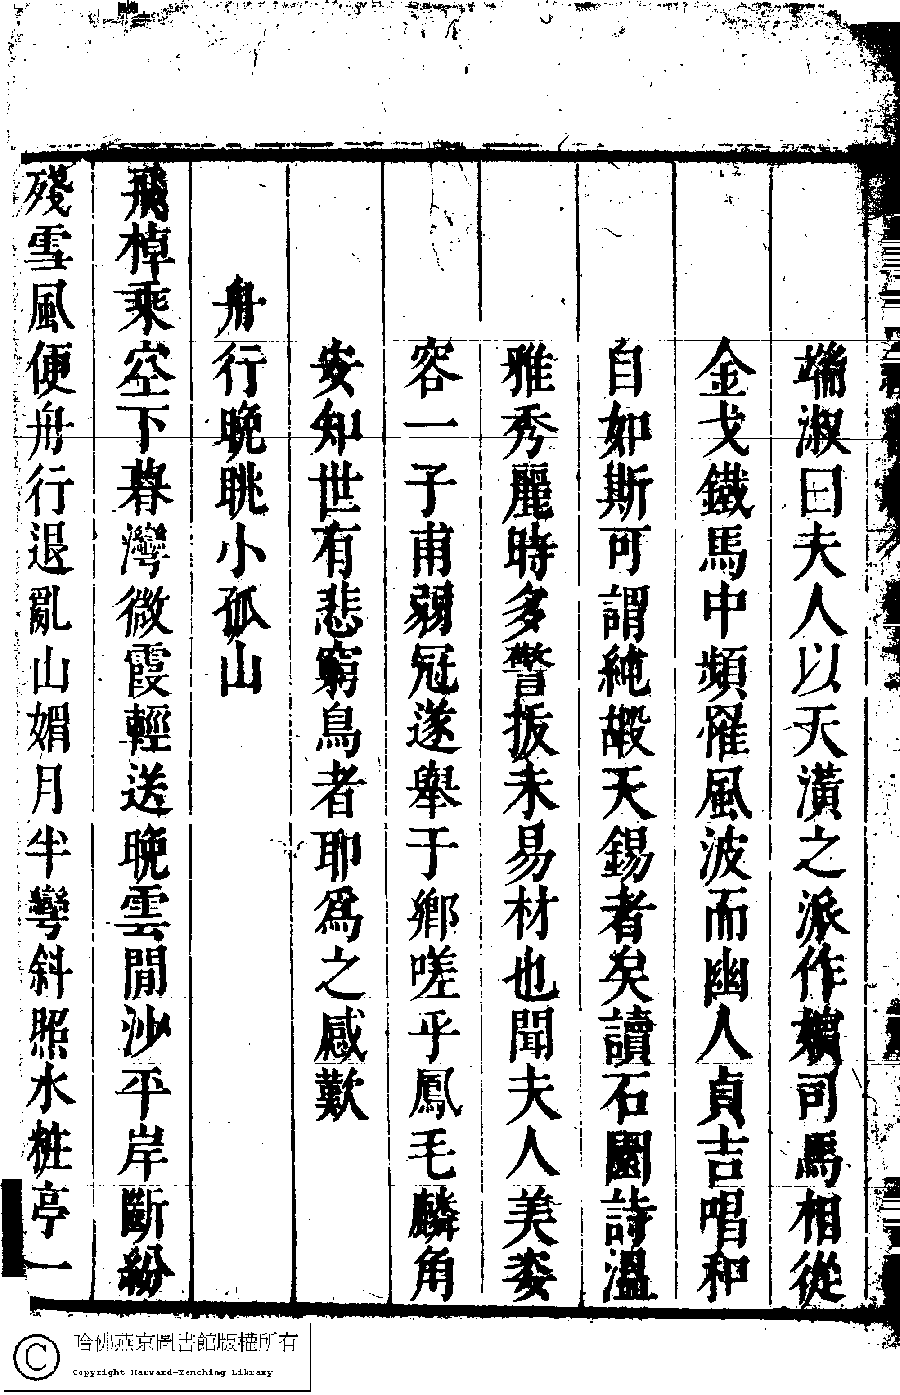 端淑曰夫人以天潢之派作嬪司馬相從
金戈鐵馬中頻罹風波而幽人貞吉唱和
自如斯可謂純嘏天錫者矣讀石園詩溫
雅秀麗時多警拔未易材也聞夫人美姿
容一子甫弱冠遂舉于鄉嗟乎鳳毛麟角
安知世有悲窮鳥者耶爲之感歎
舟行晚眺小孤山
飛棹乘空下暮灣微霞輕送晚雲閒沙平岸斷紛
殘雪風便舟行退亂山媚月半彎斜照水粧亭一
哈佛燕京圖書館版權所有
Copyright Harvard-Yenching Library